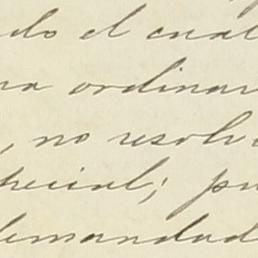 do el cual
na ordinar
, no resolvi
pecial; pu
demandad